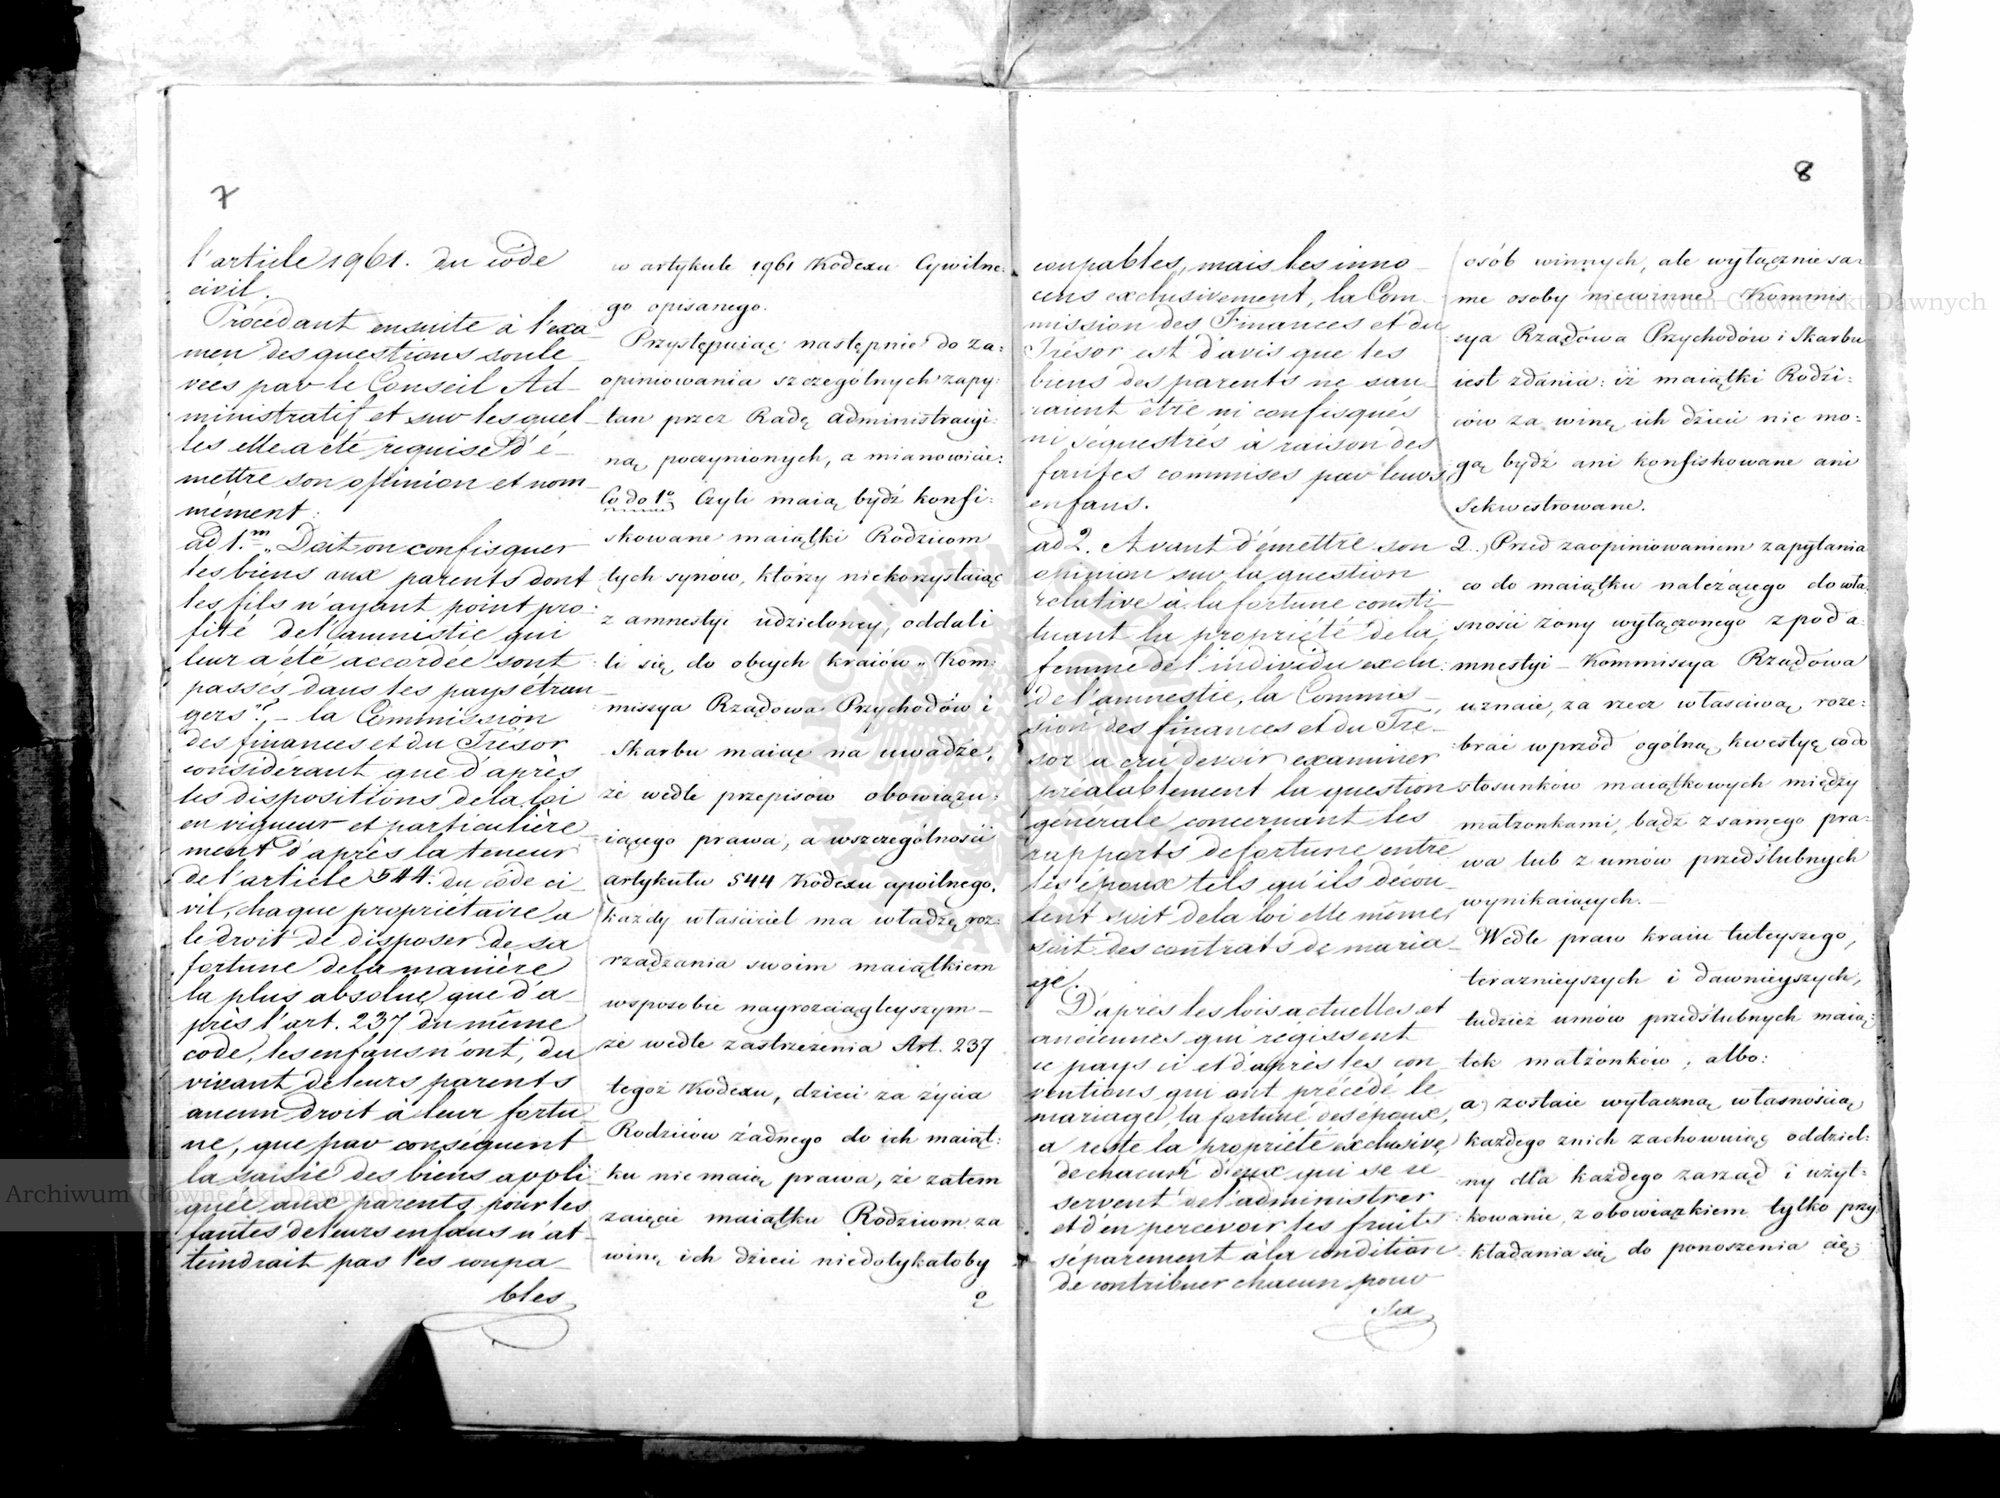 7
l'article 1961. du code
civil.
Procédant ensuite à l'exa
men des questions soule
vées par le Conseil Ad
ministratif et sur lesquel
les elle a été requise d'é
mettre son opinion et nom
mément:
ad 1.m „Doit on confisquer
les biens aux parents dont
les fils n'ayant point pro
fité de l'amnistie qui
leur a été accordée sont
passés dans les pays étran
gers"? – la Commission
des finances et du Trésor
considérant que d'après
les dispositions de la loi
en vigueur et particulière
ment d'après la teneur
de l'article 544. du code ci
vil, chaque propriétaire a
le droit de disposer de sa
fortune de la manière
la plus absolue, que d'a
près l'art. 237 du même
code, les enfans n'ont, du
vivant de leurs parents
aucun droit à leur fortu
ne, que par conséquent
la saisie des biens appli
quée aux parents pour les
fautes de leurs enfans n'at
teindrait pas les coupa
bles
w artykule 1961 Kodexu Cywilne:
go opisanego.
Przystępuiąc następnie do za:
opiniowania szczególnych zapy:
tan przez Radę Administracyi:
ną poczynionych, a mianowicie:
Co do 1o Czyli maią bydź konfi:
skowane maiątki Rodzicom
tych synow, którzy niekorzystaiąc
z amnestyi udzieloney, oddali
li się do obcych kraiów „Kom:
missya Rządowa Przychodów i
Skarbu maiąc na uwadze,
że wedle przepisów obowiązu:
iącego prawa, a wszczególności
artykułu 544 Kodexu cywilnego,
każdy właściciel ma władzę roz:
rządzania swoim maiątkiem
wsposobie nayrozciągleyszym –
że wedle zastrzeżenia Art. 237
tegoż Kodexu, dzieci za życia
Rodziców żadnego do ich maiąt:
ku nie maią prawa, że zatem
zaięcie maiątku Rodzicom za
winę ich dzieci niedotykałoby
o
8
coupables, mais les inno
cens exclusivement, la Com
mission des Finances et du
Trésor est d'avis que les
biens des parents ne sau
raient être ni confisqués
ni séquestrés à raison des
fautes commises par leurs
enfans.
ad 2. Avant d'émettre son
opinion sur la question
relative à la fortune consti
tuant la propriété de la
femme de l'individu exclu
de l'amnestie, la Commis
sion des finances et du Tré
sor a cru devoir examiner
préalablement la question
générale concernant les
rapports de fortune entre
les époux tels qu'ils décou
lent soit de la loi elle même,
soit des contrats de maria
ge.
D'après les lois actuelles et
anciennes qui régissent
ce pays ci et d'après les con
ventions qui ont précédé le
mariage, la fortune des époux,
a reste la propriété exclusive
de chacun d'eux qui se ré
servent de l'administrer
et d'en percevoir les fruits
séparément à la condition
de contribuer chacun pour
sa
osób winnych, ale wyłącznie sa:
me osoby niewinne. Kommis
sya Rządowa Przychodów i Skarbu
iest zdania: iż maiątki Rodzi:
ców za winę ich dzieci nie mo:
gą bydź ani konfiskowane ani
sekwestrowane.
2.) Przed zaopiniowaniem zapytania
co do maiątku należącego do wła:
sności żony wyłączonego z pod a:
mnestyi – Kommissya Rządowa
uznaie, za rzecz właściwą, roze:
brać wprzód ogólną kwestyę co do
stosunków maiątkowych między
małżonkami, bądź z samego pra:
wa lub z umów przedślubnych
wynikaiących. –
Wedle praw kraiu tuteyszego,
teraznieyszych i dawnieyszych,
tudzież umów przedślubnych maią:
tek małżonków, albo:
a) zostaie wyłaczną własnością
każdego z nich zachowuiąc oddziel:
ny dla każdego zarząd i użyt:
kowanie, z obowiązkiem tylko przy
kładania się do ponoszenia cię:
Archiwum Główne Akt Dawnych
Archiwum Główne Akt Dawnych